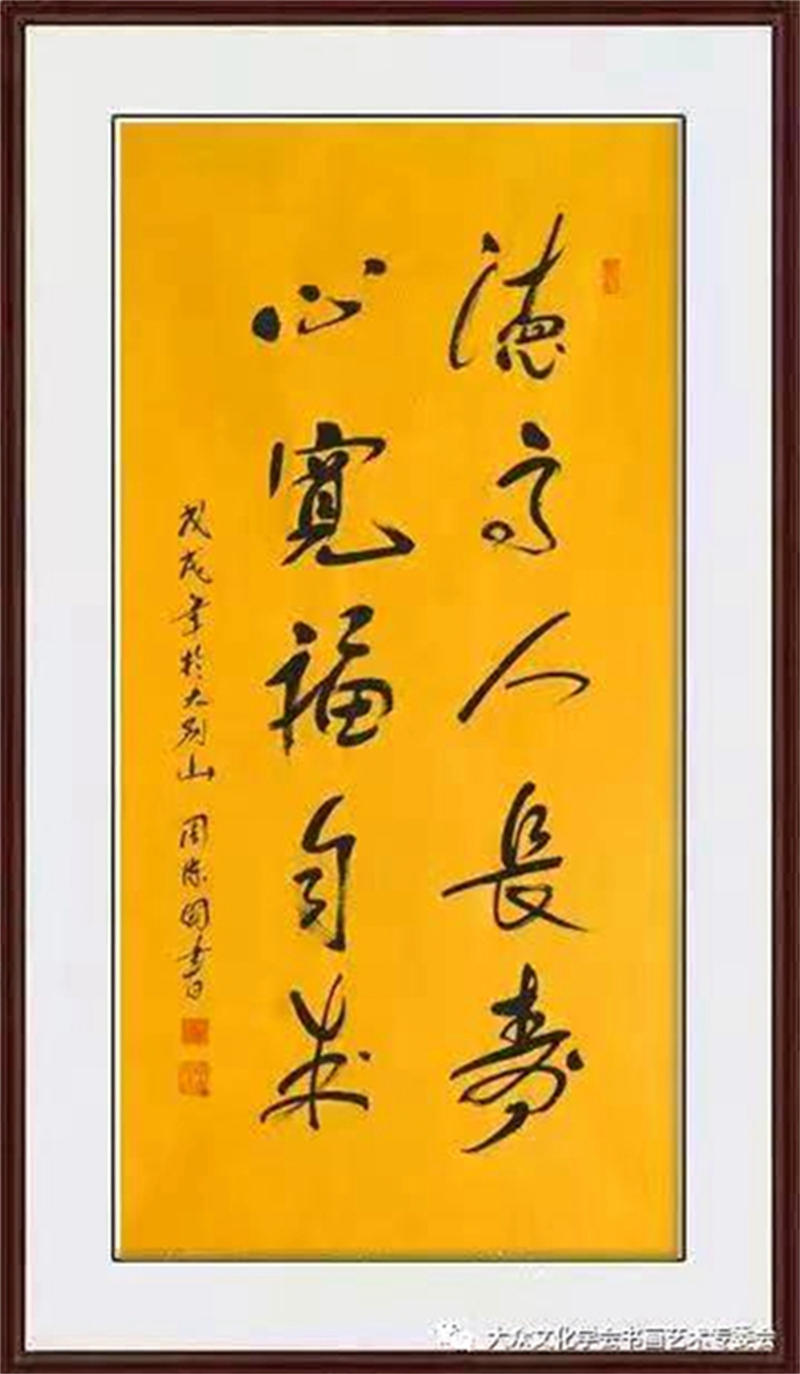 德高人長壽
心寬福自来
戊戌年於大别山 周陈国書
大众文化学会书画艺术专委会